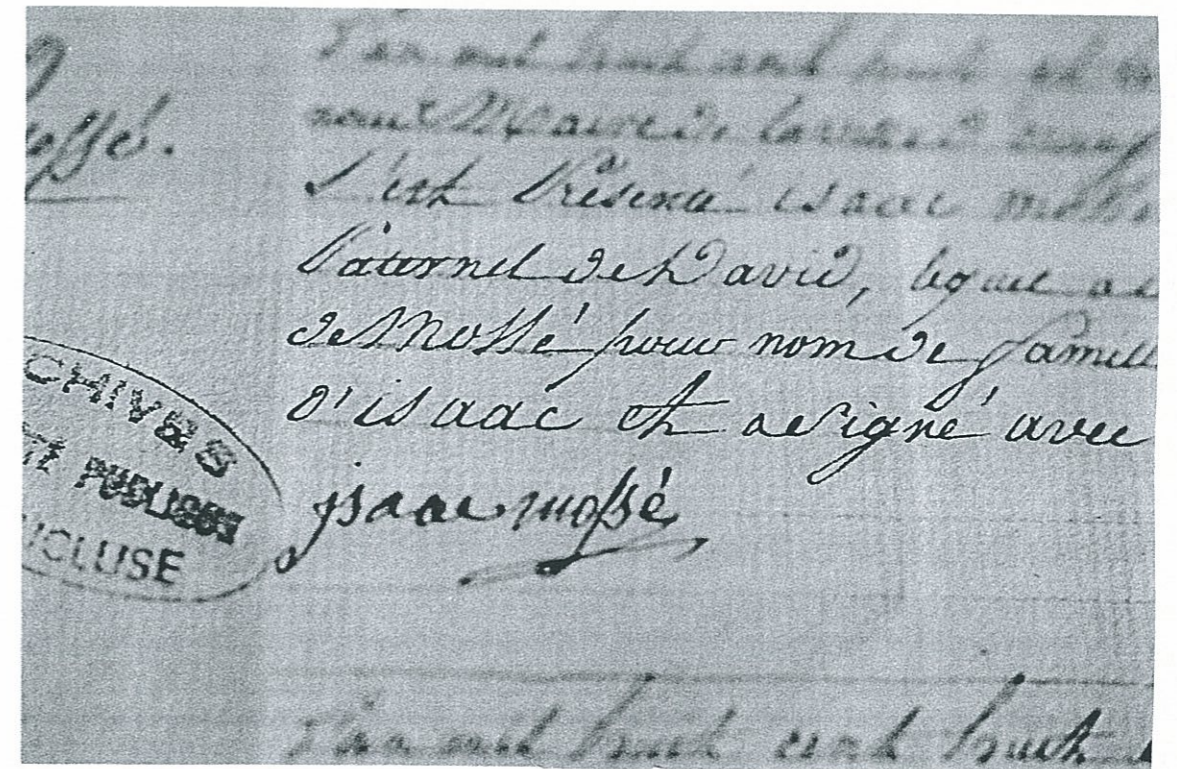 L'an mil huit cent huit et
nous Maire de la
ossé.
S'est Présenté isaac mossé
Paternel de David, lequel a
de Mossé pour nom de famill
d'isaac et a signé avec
CHIVES
PUBLIQUE
UCLUSE
jsaac mossé
L'an mil huit cent huit